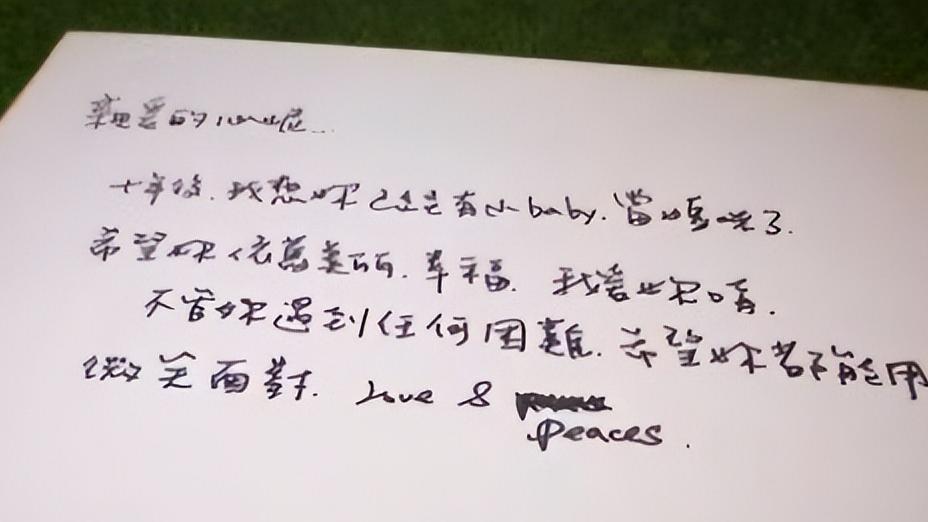 親愛的心妮...
十年後.我想妳已經有小baby.當媽咪了.
希望妳依舊美麗.幸福. 我愛妳唷.
不管妳遇到任何困難.希望妳都能用
微笑面對. Love &
Peaces.